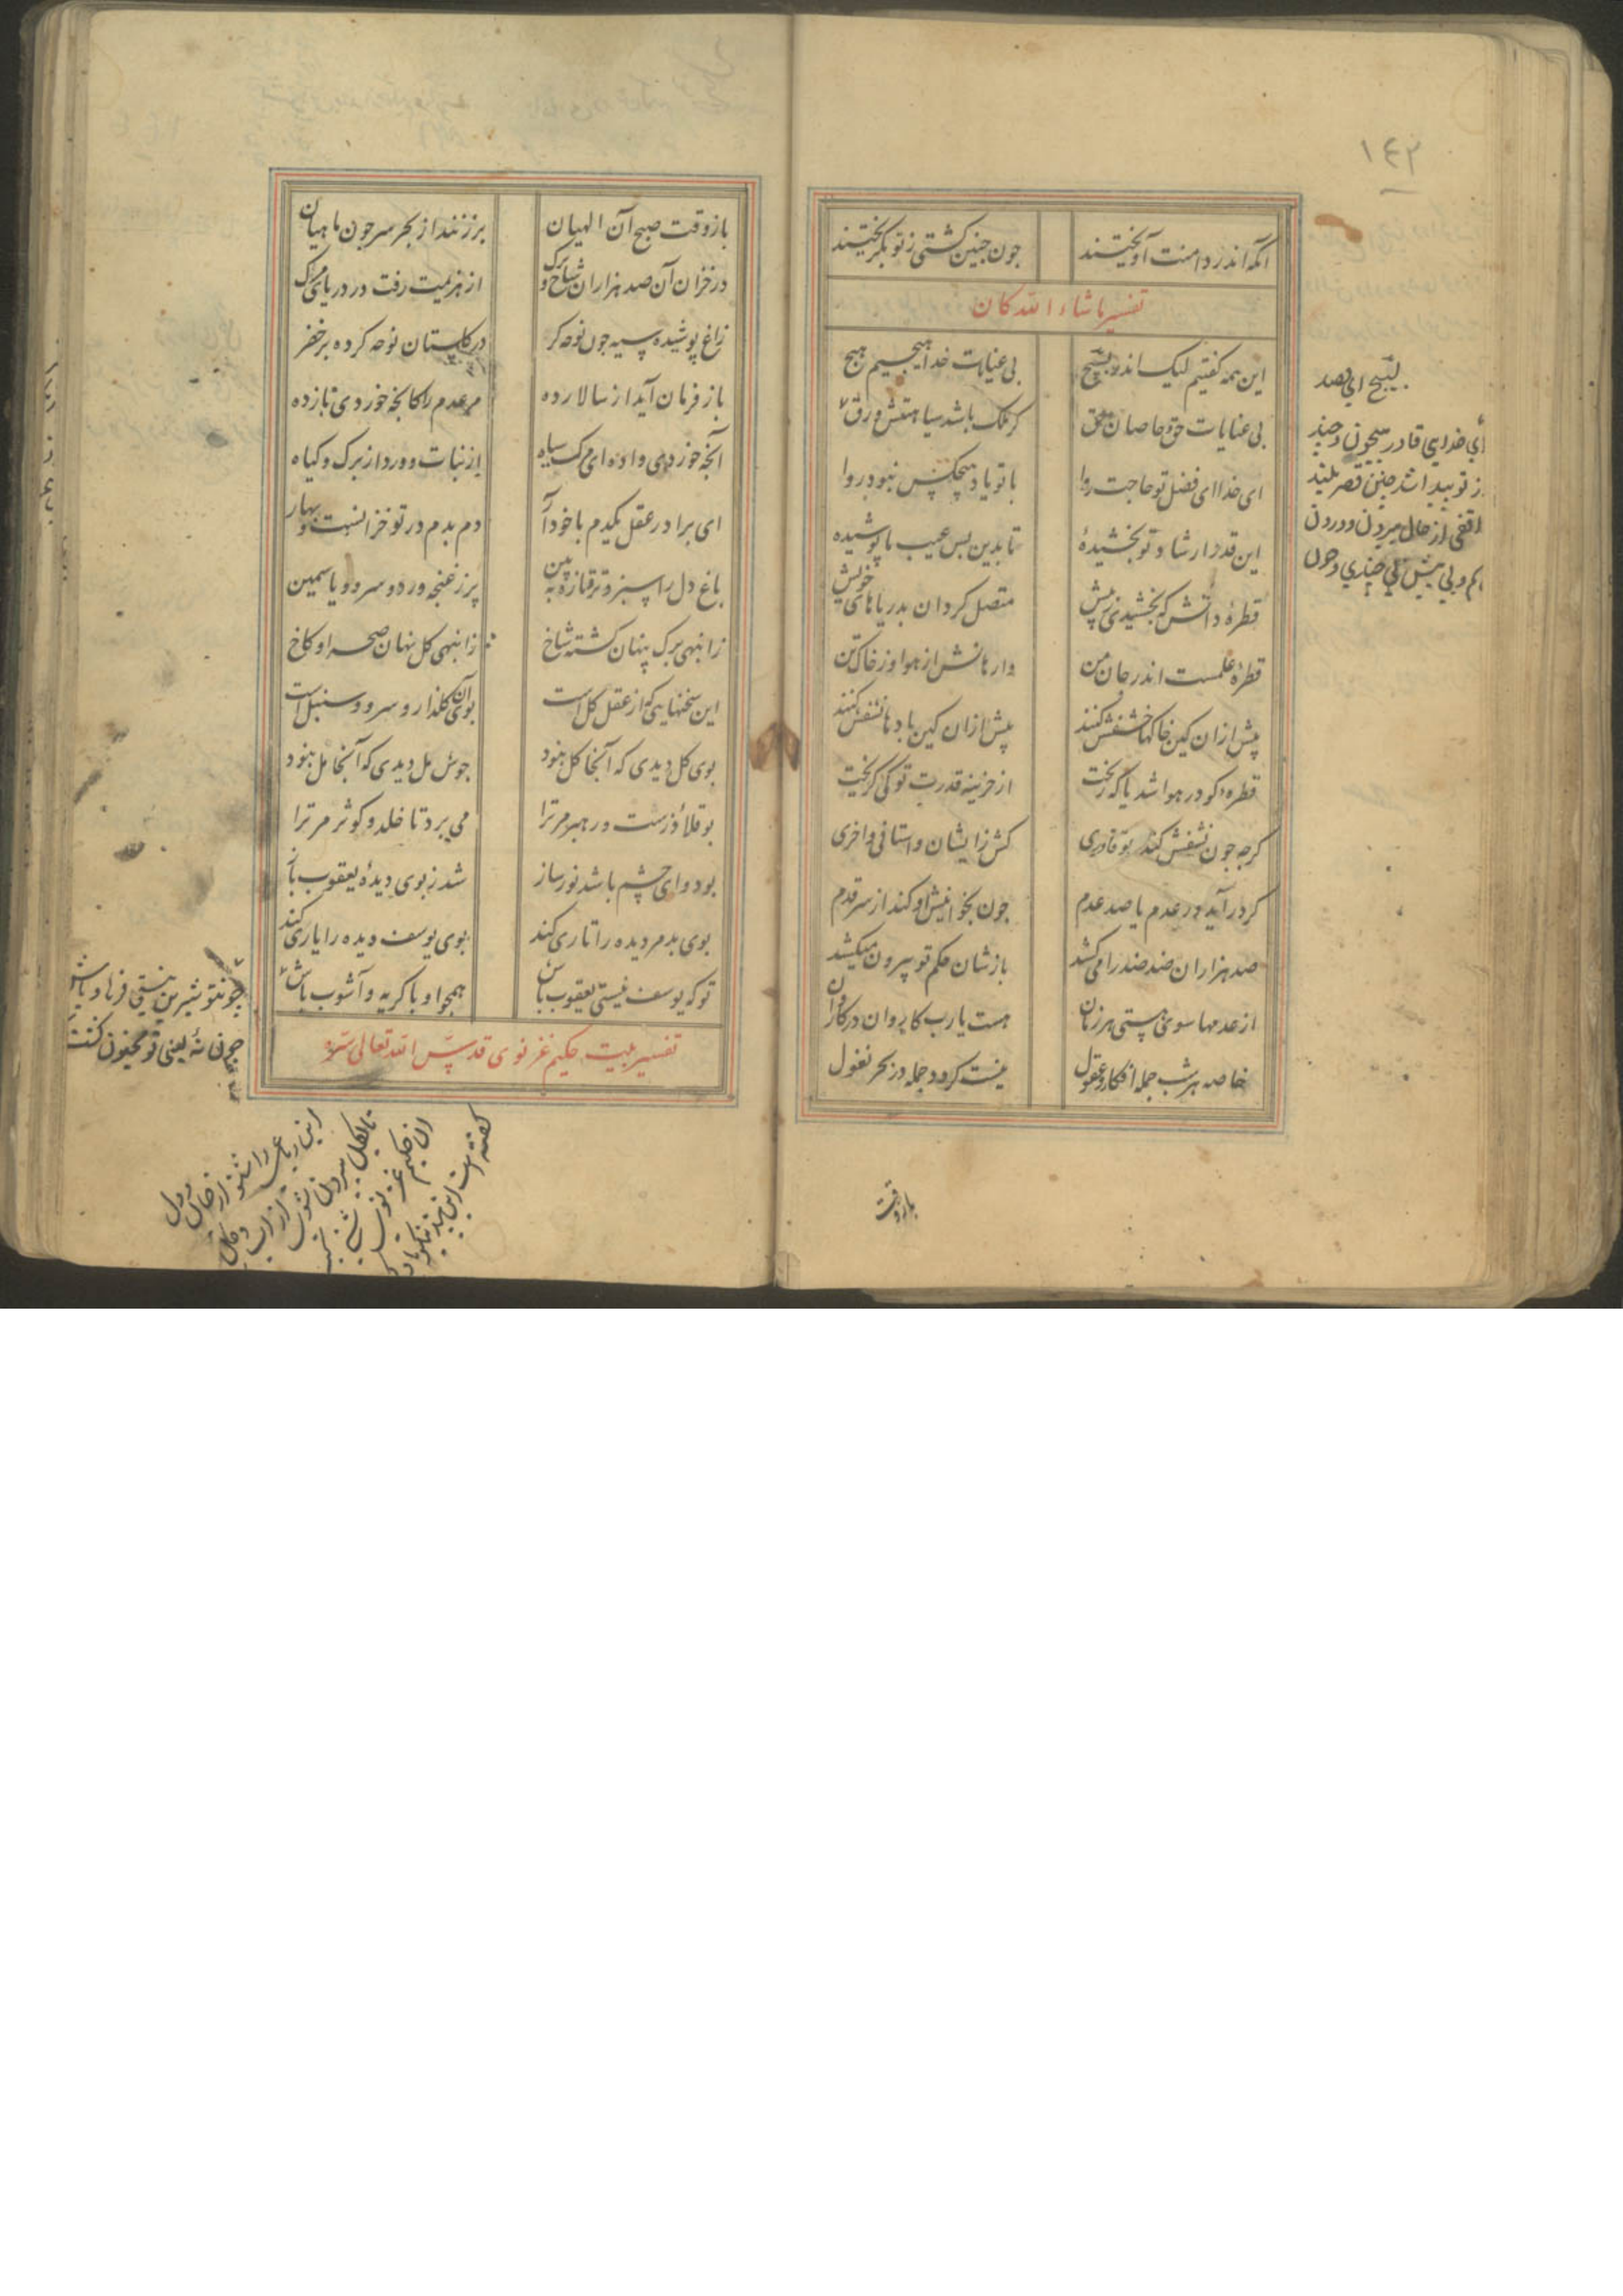 ١٤٢
آنکه اندر دامنت آویختند جون جنین کشتی ز تو بکریختند
تفسیر ما شاء الله کان
این همه کفتیم لیک اندر بسیج بی عنایات خدا هیجیم هیج
بی عنایات حق و خاصان حق کر ملک باشد سیاهستش ورق
ای خدا ای فضل تو حاجت روا با تو یاد هیچکس نبود روا
این قدر ارشاد تو بخشیدهٔ تا بدین بس عیب ما پوشیده
قطرهٔ دانش که بخشیدی ز پیش متصل کردان بدریاهای خویش
قطرهٔ علمست اندر جان من وارهانش از هوا وز خاک تن
پیش ازان کین خاکها خسفش کنند پیش ازان کین بادها نشفش کنند
قطرهٔ کو در هوا شد یا که ریخت از خزینه قدرت تو کی کریخت
کرجه جون نشفش کند تو قادری کش از ایشان واستانی واخری
کر در آید در عدم یا صد عدم جون بخوانیش او کند از سر قدم
صد هزاران ضد ضد را می کشد بازشان حکم تو بیرون میکشد
از عدمها سوی هستی هر زمان هست یا رب کاروان در کاروان
خاصه هر شب جمله افکار و عقول نیست کردد جمله در بحر نغول
باز وقت
بسیج ای قصد
ای خدای قادر بیجون و جند
از تو پیدا شد جنین قصر بلند
واقفی از حال بیرون و درون
کم و بی بیش بی جندی و جون
باز وقت صبح آن الهیان بر زنند از بحر سر جون ماهیان
در خزان آن صد هزاران شاخ و برک از هزیمت رفت در دریای مرک
زاغ پوشیده سیه جون نوحه کر در کلستان نوحه کرده بر خضر
باز فرمان آید از سالار ده مر عدم را کانجه خوردی باز ده
آنجه خوردی واده ای مرک سیاه از نبات و ورد از برک و کیاه
ای برادر عقل یکدم با خود آر دم بدم در تو خزانست و بهار
باغ دل را سبز و تر و تازه بین پر ز غنجه ورد و سرو و یاسمین
ز انبهی برک پنهان کشته شاخ ز انبهی کل نهان صحرا و کاخ
این سخنهایی که از عقل کل است بوی آن کلزار و سرو و سنبل است
بوی کل دیدی که آنجا کل نبود جوش مل دیدی که آنجا مل نبود
بو قلاوزست و رهبر مر ترا می برد تا خلد و کوثر مر ترا
بو دوای چشم باشد نورساز شد ز بوی دیدهٔ یعقوب باز
بوی بد مر دیده را تاری کند بوی یوسف دیده را یاری کند
تو که یوسف نیستی یعقوب باش همجو او با کریه و آشوب باش
تفسیر بیت حکیم غزنوی قدس الله تعالی سره
جون تو شیرین نیستی فرهاد باش
جون نهٔ لیلی تو مجنون کرد
این رباعی را شنو از جان و دل
تا بکل بیرون شوی از آب و کل
آن حکیم غزنوی
کفته است این پند نیکو یاد